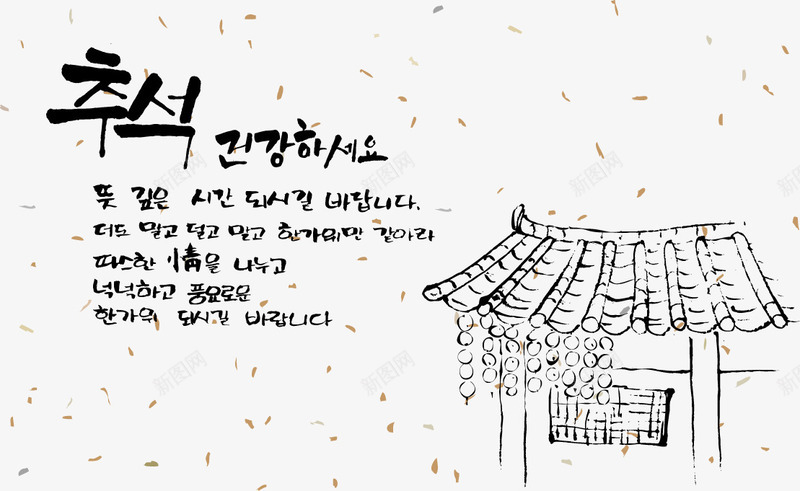 추석
건강하세요
뜻 깊은 시간 되시길 바랍니다.
더도 말고 덜고 말고 한가위만 같아라
따스한 情을 나누고
넉넉하고 풍요로운
한가위 되시길 바랍니다